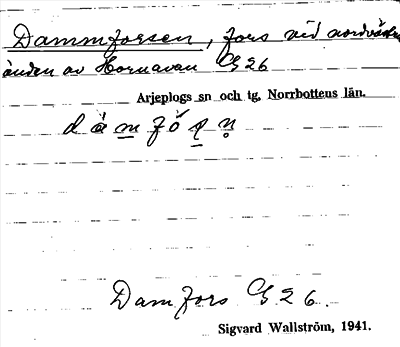 Dammforsen, fors vid nordvästra
änden av Hornavan G 26
Arjeplogs sn och tg, Norrbottens län.
Damfors G 26.
Sigvard Wallström, 1941.